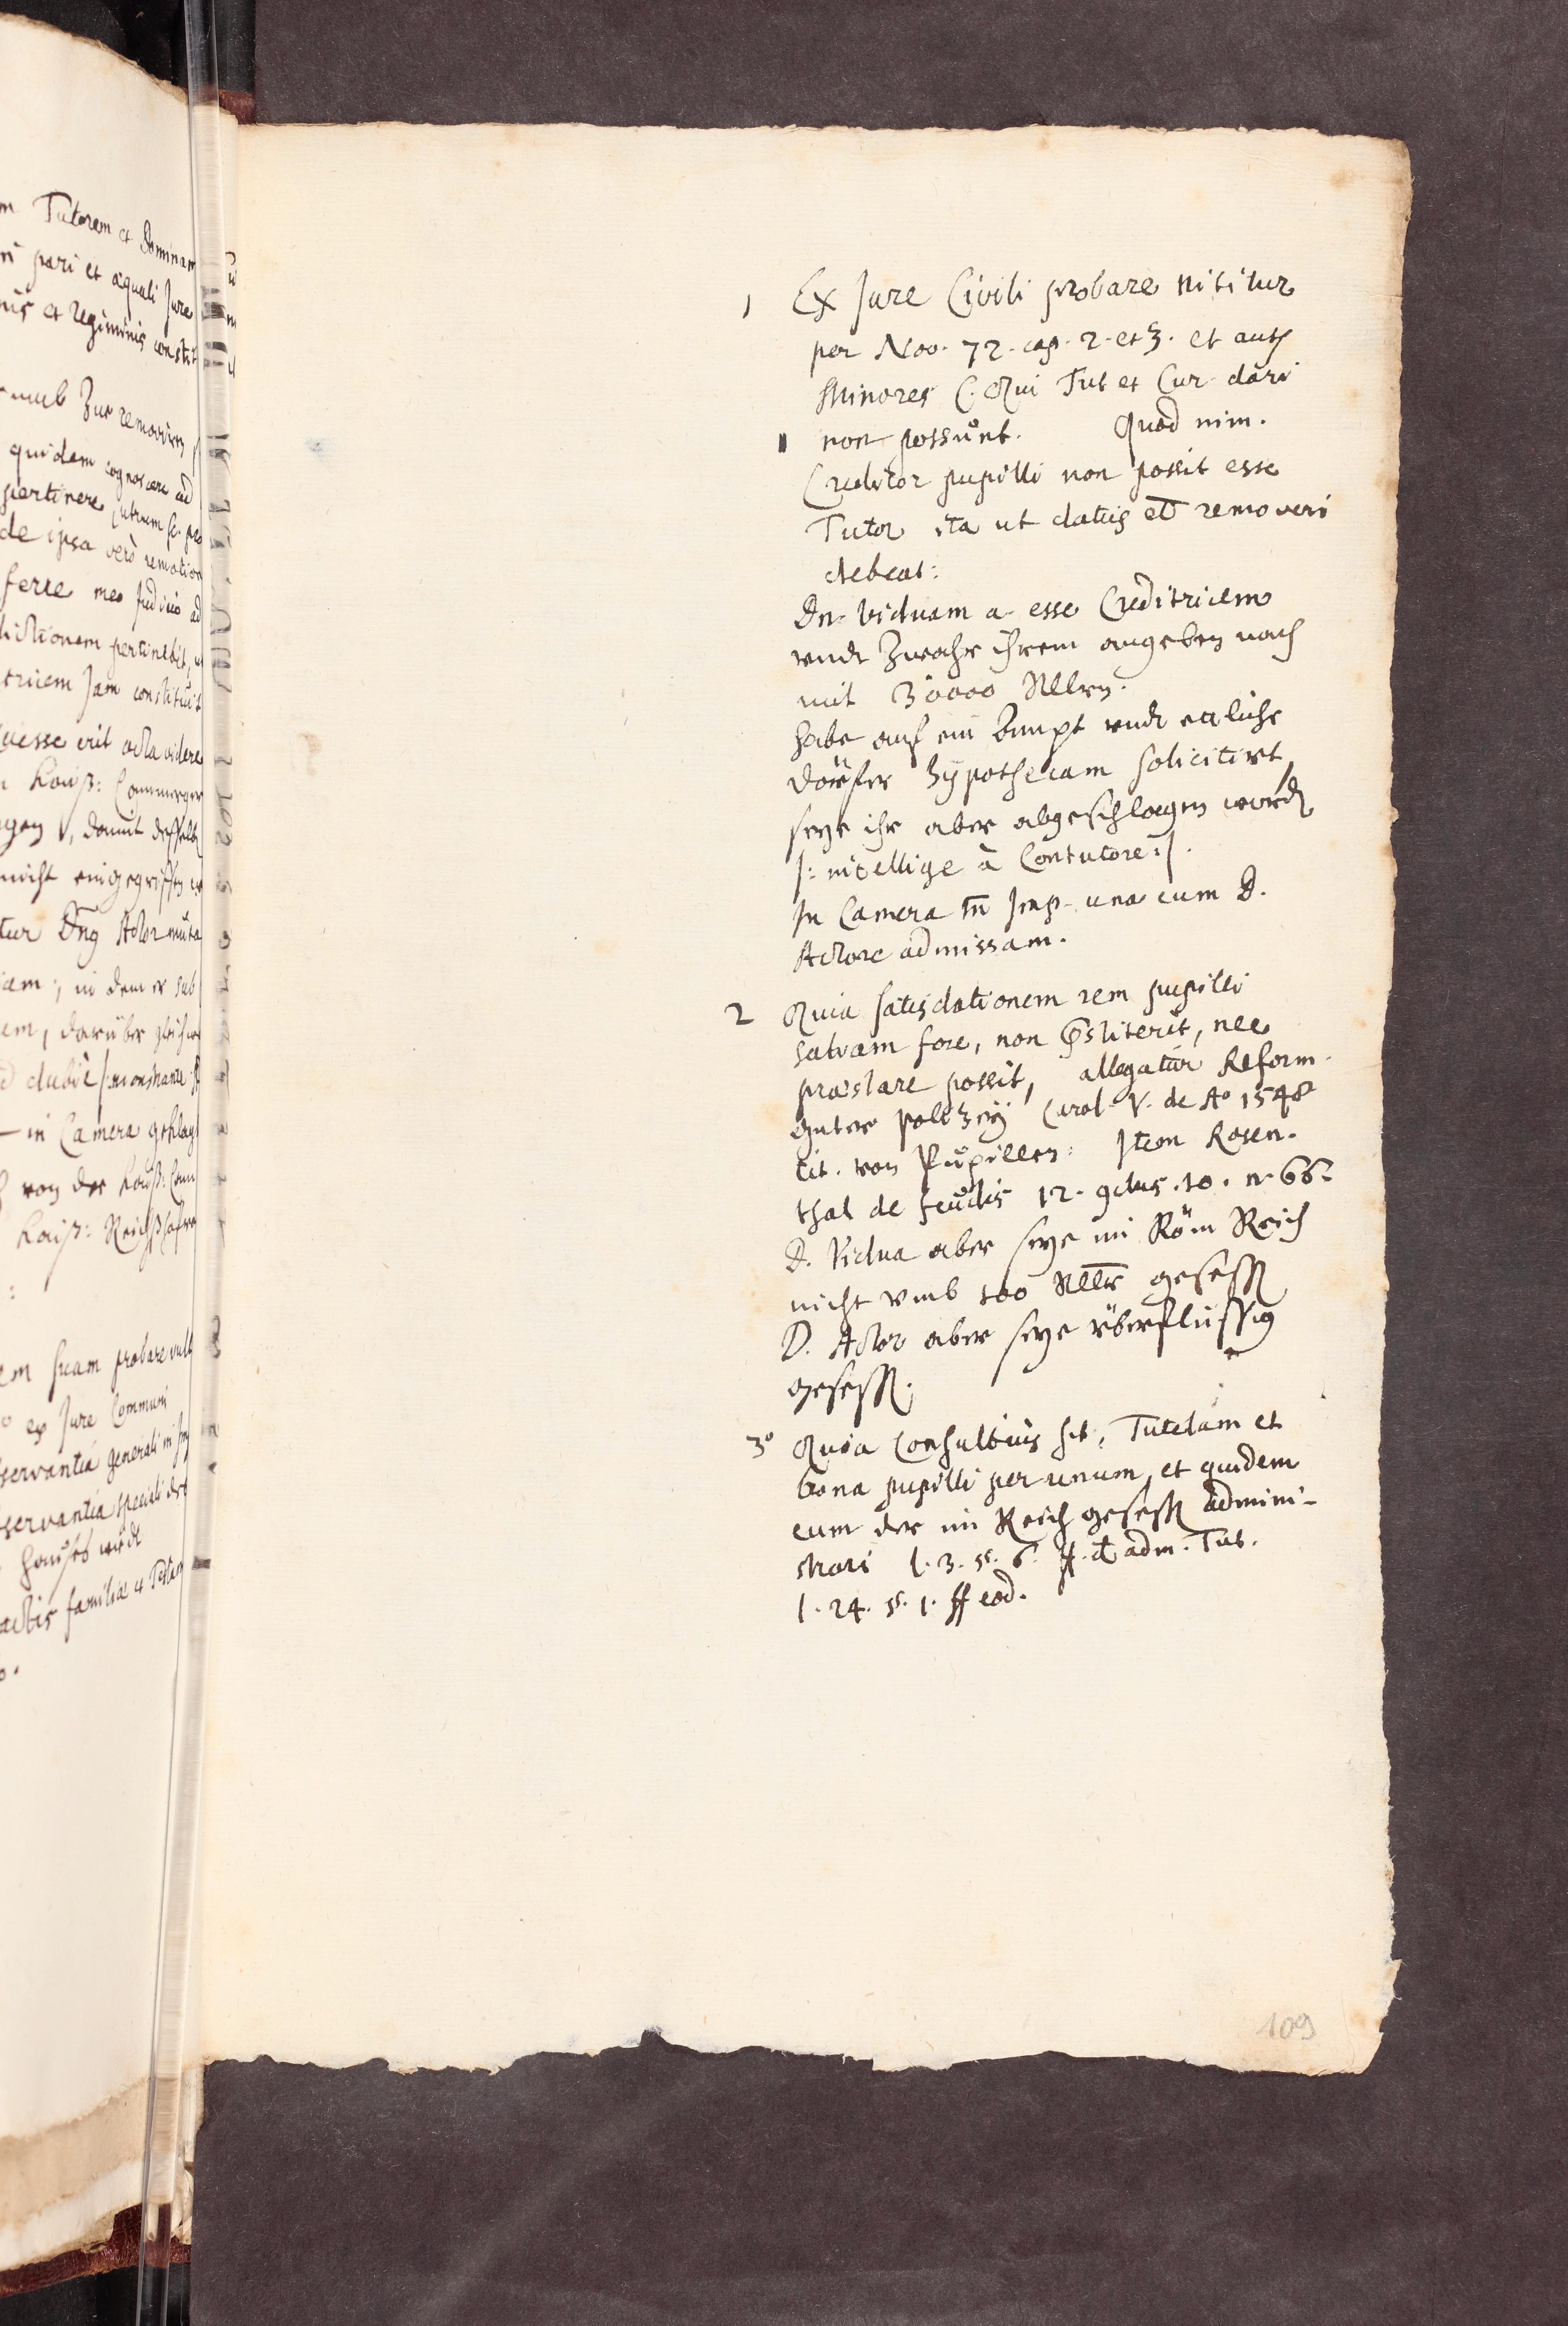 m Tutorem et Dominam
ri pari et æquali Jure
nis et Regiminis constit
umb Zue removirn
quidem cognoscere ad
pertinere, utrum sc. pro
de ipsa verò remotion
ferre meo Judicio ad
dictionem pertinebit,
tricem Jam constituit
uesse erit acta videre
Kaiß: Cammerger
gen, damit deßelb
nicht eingegriffen
tur Dng Actor muta
iam; in dem er sub
em, darüber
d dubie
in Camera geklag
von der Kaiß: Cam
Kaiß: Reichßhofra
em suam probare vult
ex Jure Communi
servantia generali in
servantia speciali des
Haußes undt
actis familiæ et Testam
1 Ex Jure Civili probare nititur
per Nov. 72. cap. 2. et 3. et auth
Minores C. Qui Tut et Cur dari
non possunt. Quod nim.
Creditor pupilli non possit esse
Tutor ita ut datus et removeri
debeat:
Dn. Viduam a. esse Creditricem
undt Zwahr ihrem angeben nach
mit 30000 Rllrn.
habe auf ein Ampt undt etliche
dörfer Hypothecam solicitirt,
seye ihr aber abgeschlagen word
|: intellige à Contutore :|.
In Camera tn Imp. una cum D.
Actore admissam.
2 Quia satisdationem rem pupilli
salvam fore, non præstiterit, nec
præstare possit, allegatur Reform.
guter policzey Carol. V. de Ao 1548
tit. von Pupillen: Item Rosen-
thal de feudis 12. 9clus. 10. n. 66.
D. Vidua aber seye im Röm Reich
nicht umb 100 Rllr geseßen
D. Actor aber seye überflüssig
geseßen.
3o Quia consultius sit, Tutelam et
bona pupilli per unum, et quidem
eum der im Reich geseßen admini-
strari l. 3. §. 6. ff. d adm. Tut.
l. 24. §. 1. ff eod.
109